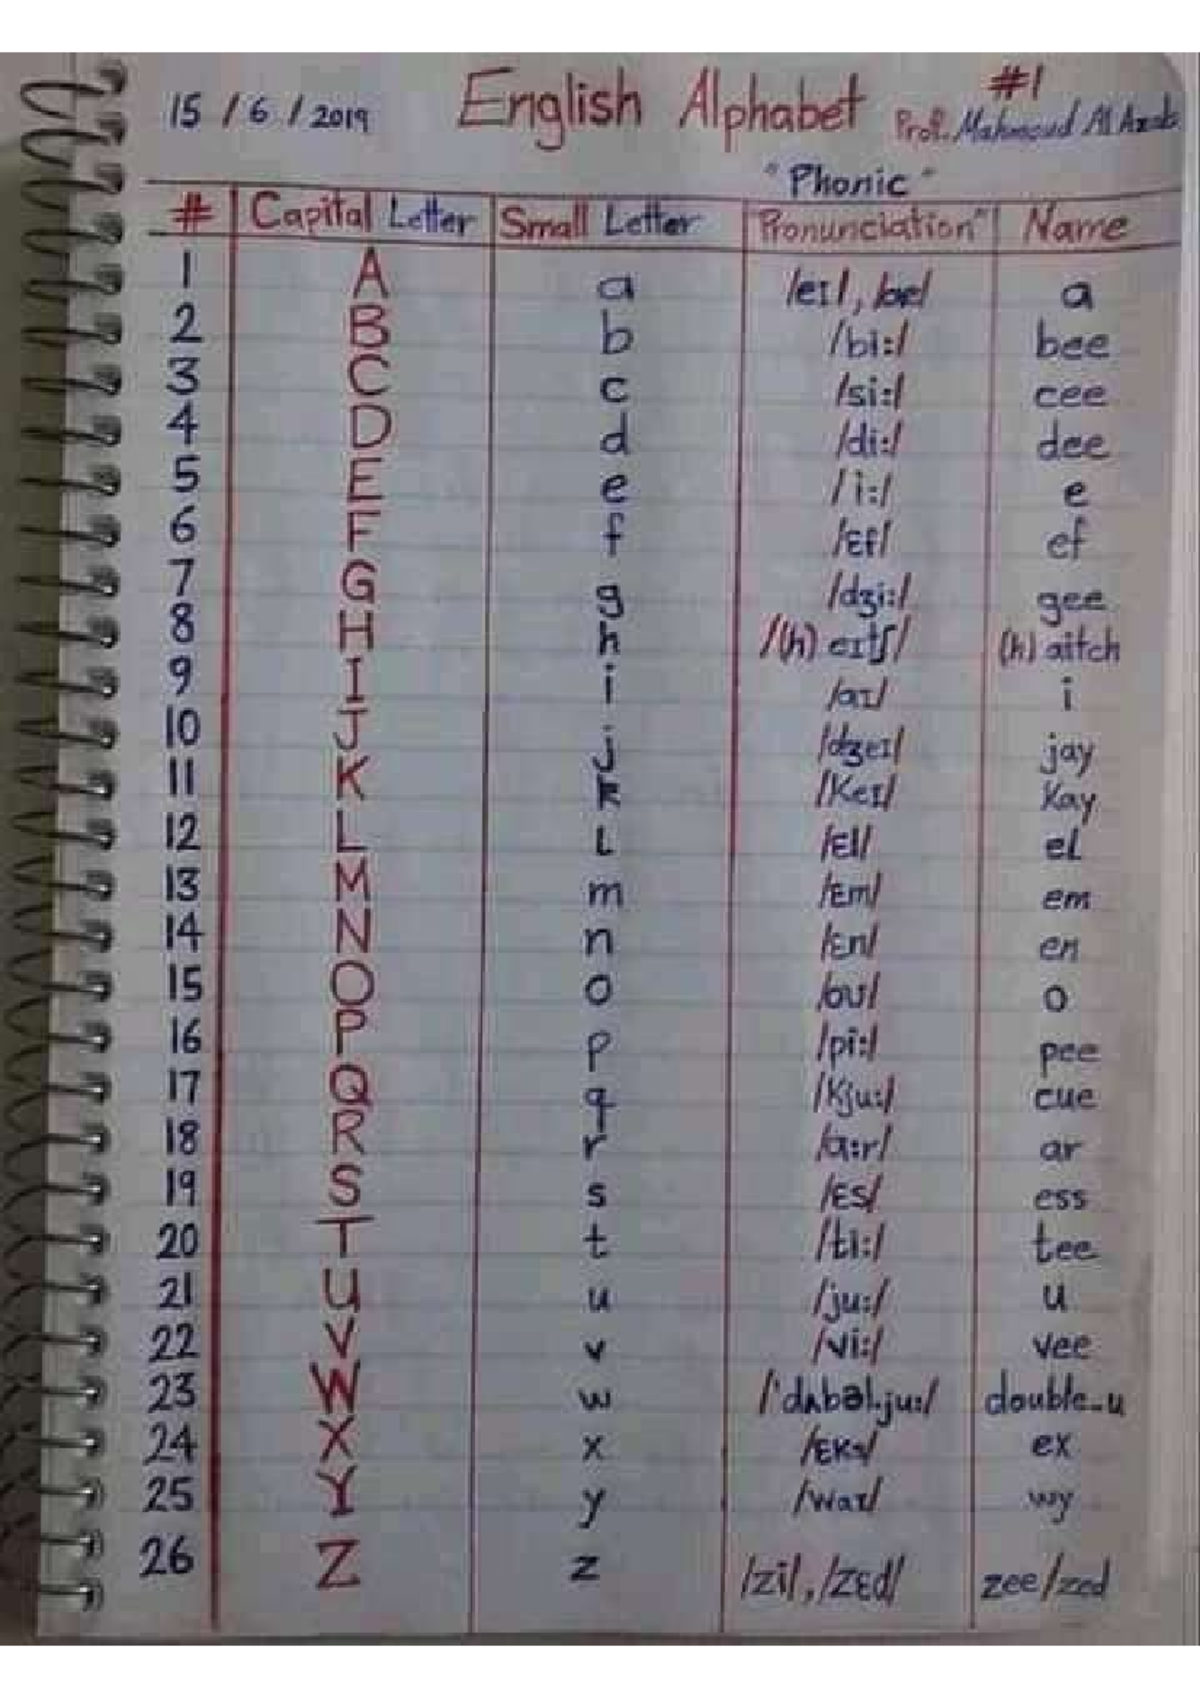 #1
15 / 6 / 2019 English Alphabet Prof. Mahmoud Al Azab
"Phonic"
# Capital Letter Small Letter "Pronunciation" Name
1 A a /eɪ/, /æ/ a
2 B b /bi:/ bee
3 C c /si:/ cee
4 D d /di:/ dee
5 E e /i:/ e
6 F f /ɛf/ ef
7 G g /dʒi:/ gee
8 H h /(h) eɪtʃ/ (h) aitch
9 I i /aɪ/ i
10 J j /dʒeɪ/ jay
11 K k /keɪ/ kay
12 L l /ɛl/ el
13 M m /ɛm/ em
14 N n /ɛn/ en
15 O o /oʊ/ o
16 P p /pi:/ pee
17 Q q /kju:/ cue
18 R r /ɑ:r/ ar
19 S s /ɛs/ ess
20 T t /ti:/ tee
21 U u /ju:/ u
22 V v /vi:/ vee
23 W w /ˈdʌbəl.ju:/ double-u
24 X x /ɛks/ ex
25 Y y /waɪ/ wy
26 Z z /zi/, /zɛd/ zee/zed